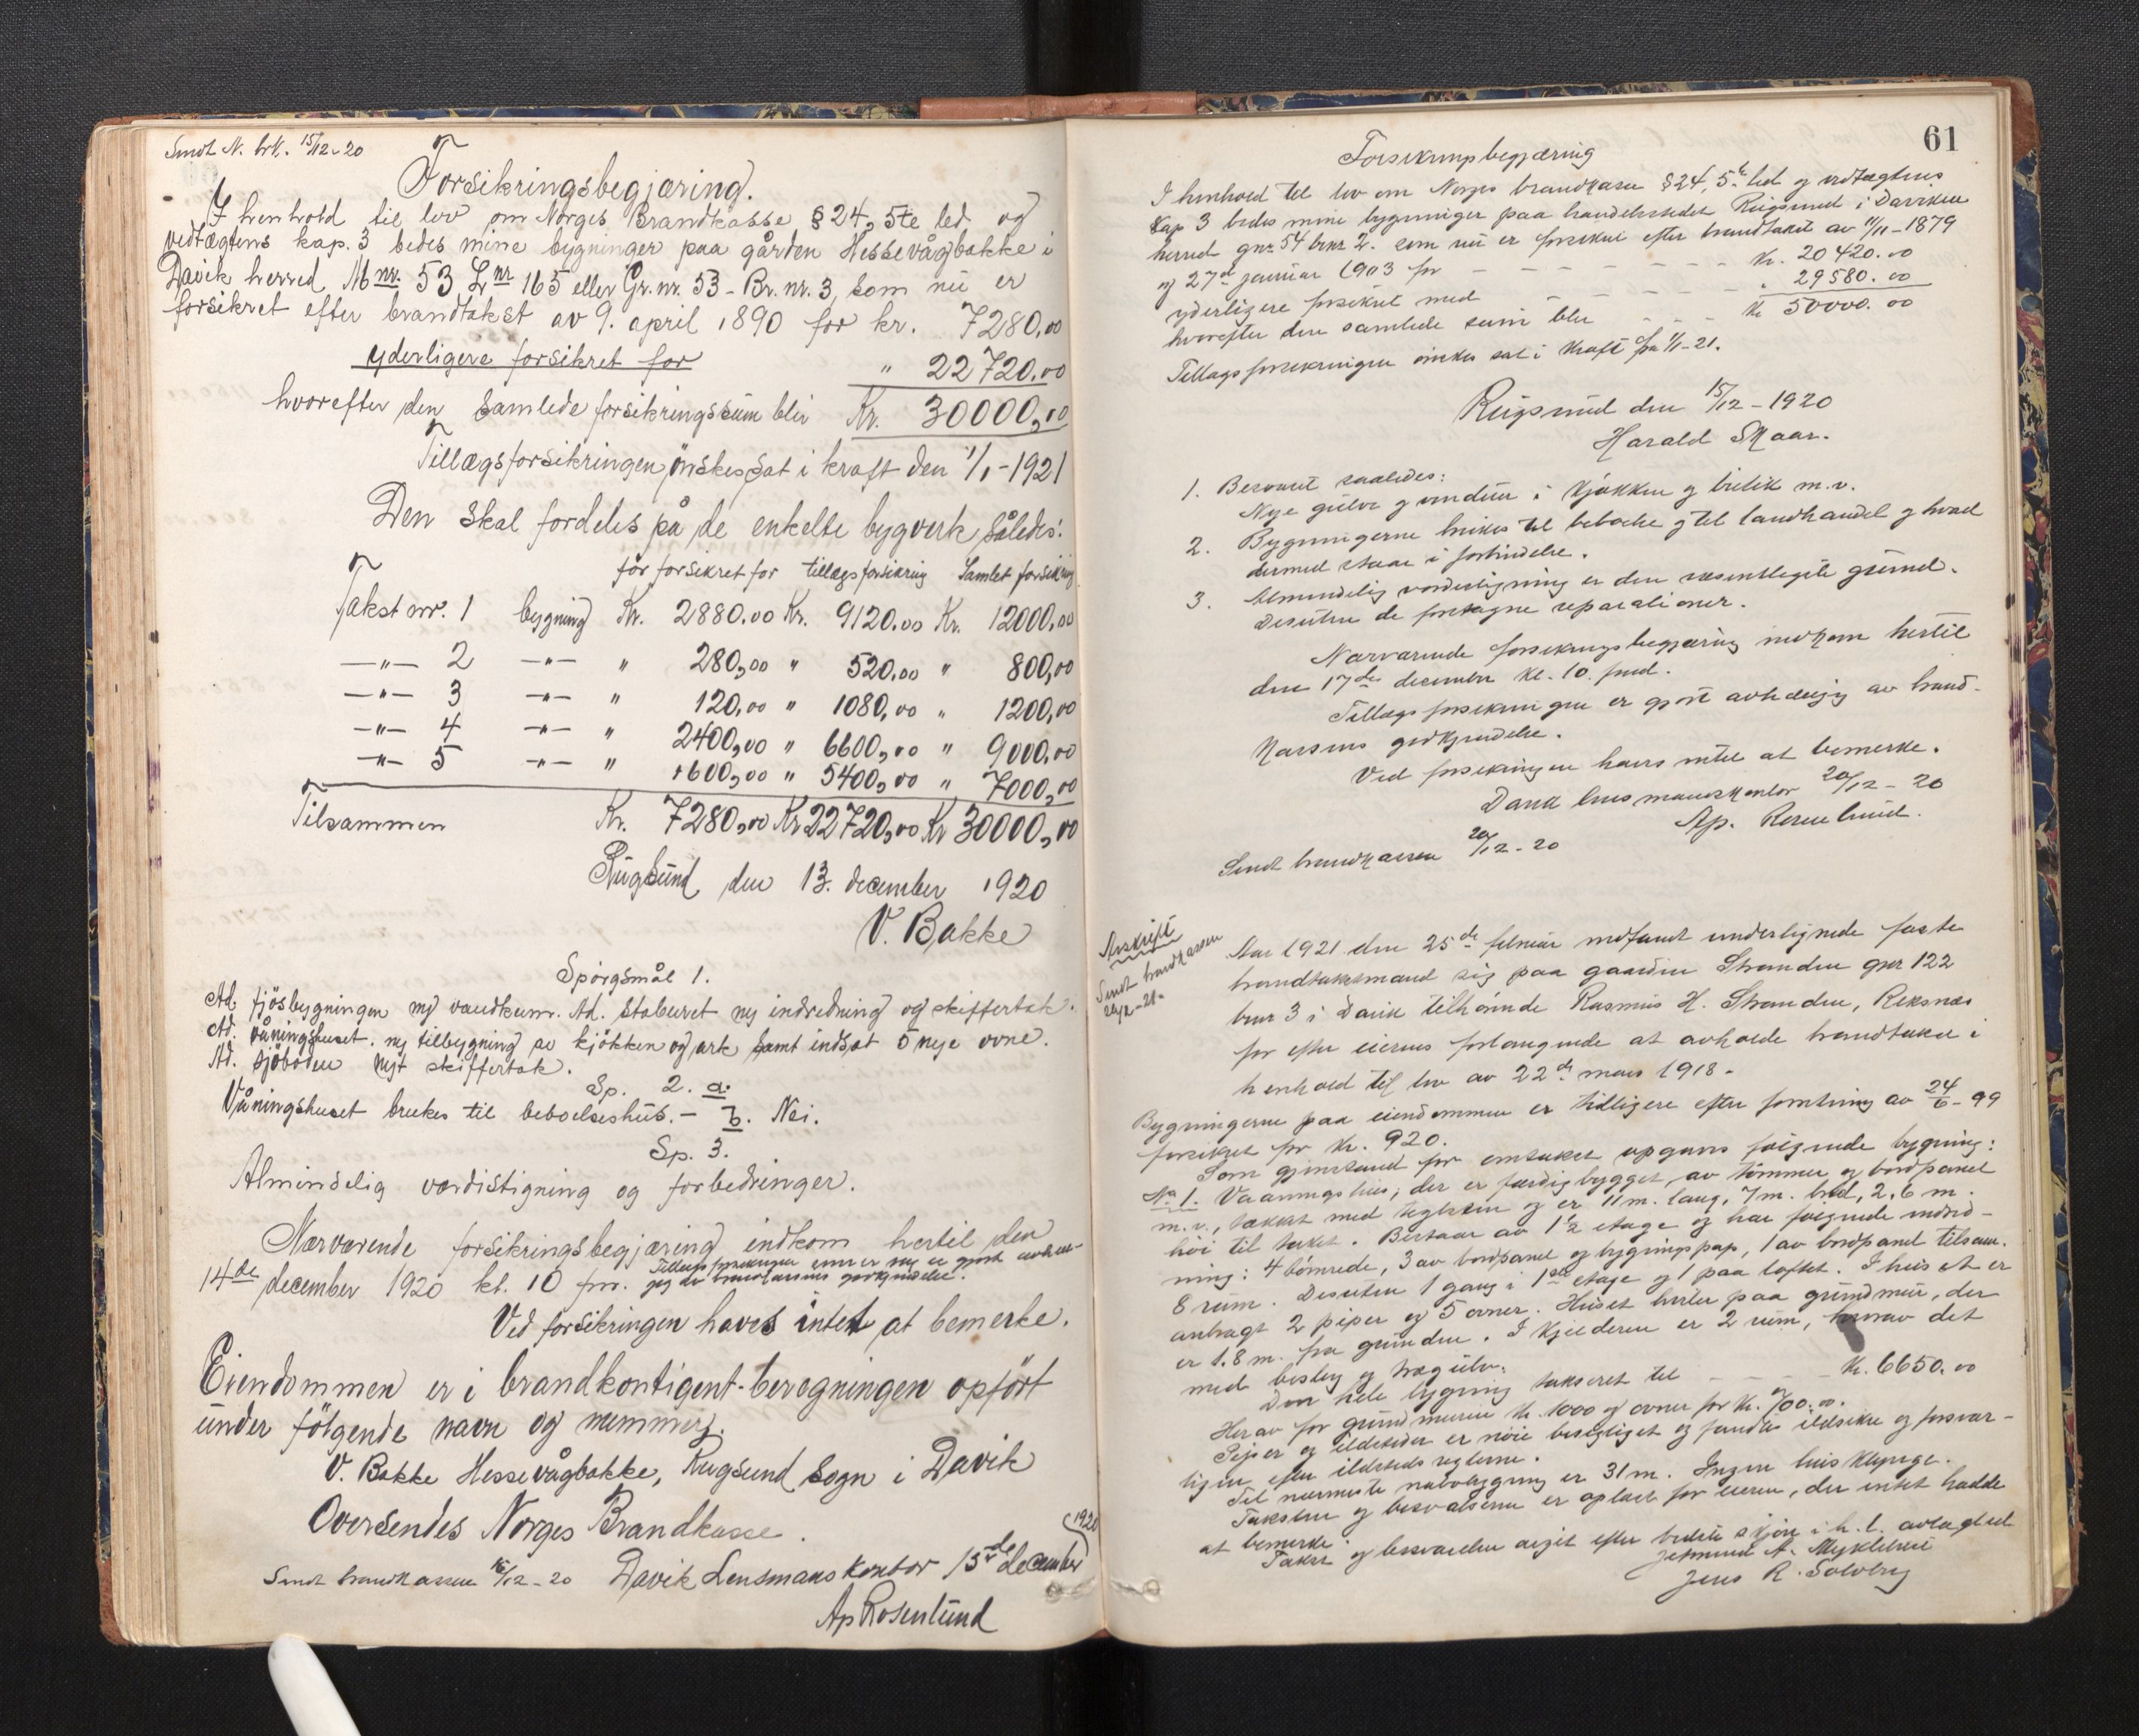 Sendt N. brk. 15/12-20
Forsikringsbegjæring.
I henhold til lov om Norges Brandkasse § 24, 5te led og
vedtægtens kap. 3 bedes mine bygninger paa gården Hessevågbakke i
Davik herred, M nr. 53 L nr 165 eller Gr. nr. 53 - Br. nr. 3, som nu er
forsikret efter brandtakst av 9. april 1890 for kr. 7280,00
yderligere forsikret for " 22720,00
hvorefter den samlede forsikringssum blir Kr. 30000,00
Tillægsforsikringen ønskes sat i kraft den 1/1-1921
Den skal fordeles på de enkelte bygverk således:
før forsikret for tillægsforsikring Samlet forsikring
Takst nr. 1 bygning Kr. 2880.00 Kr. 9120.00 Kr. 12000,00
—"— 2 —"— " 280,00 " 520,00 " 800,00
—"— 3 —"— " 120,00 " 1080,00 " 1200,00
—"— 4 —"— " 2400,00 " 6600,00 " 9000,00
—"— 5 —"— " 1600,00 " 5400,00 " 7000,00
Tilsammen Kr. 7280,00 Kr 22720,00 Kr 30000,00
Rugsund den 13. december 1920
V. Bakke
Spørgsmål 1.
Ad. fjösbygningen ny vandkum. Ad. Staburet ny indredning og skiffertak.
Ad. våningshuset. ny tilbygning av kjökken og ark samt indsat 5 nye ovne.
Ad. sjöboden nyt skiffertak.
Sp. 2. a.
Våningshuset brukes til beboelseshus. - b. Nei.
Sp. 3.
Almindelig værdistigning og forbedringer.
Nærværende forsikringsbegjæring indkom hertil den
14de december 1920 kl. 10 fm. Tillægsforsikringen er gjort avhæn-
gig av brandkassens godkjendelse.
Ved forsikringen haves intet at bemerke.
Eiendommen er i brandkontigent-beregningen opført
under følgende navn og nummer.
V. Bakke Hessevågbakke, Rugsund sogn i Davik
Oversendes Norges Brandkasse.
Sendt brandkassen 15/12-20 Davik Lensmanskontor 15de december 1920
Ap Rosenlund
61
Forsikringsbegjæring
I henhold til lov om Norges brandkasse § 24, 5te led og vedtægtens
kap 3 bedes mine bygninger paa handelsstedet Rugsund i Daviken
herred gnr 54 brnr 2. som nu er forsikret efter brandtakst av 11/11-1879
og 27de januar 1903 for — — — Kr. 20420.00
yderligere forsikret med — — — " 29580.00
hvorefter den samlede sum blir — — — Kr 50000.00
Tillægsforsikringen ønskes sat i kraft fra 1/1-21.
Rugsund den 15/12-1920
Harald Skaar.
1. Besvaret saaledes:
Nye gulve og vinduer i kjøkken og butik m.v.
2. Bygningerne brukes til beboelse og til landhandel og hvad
dermed staar i forbindelse.
3. Almindelig værdistigning er den væsentligste grund.
Desuten de foretagne reparationer.
Nærværende forsikringsbegjæring indkom hertil
den 17de december kl. 10 fmd.
Tillægsforsikringen er gjort avhængig av brand-
kassens godkjendelse.
Ved forsikringen haves intet at bemerke.
Davik lensmandskontor 20/12-20
Ap. Rosenlund.
Sendt brandkassen 20/12-20
Avskrift
Sendt brandkassen
26/2-21.
Aar 1921 den 25de februar indfandt undertegnede faste
brandtakstmænd sig paa gaarden Stranden gnr 122
brnr 3 i Davik tilhørende Rasmus H. Stranden, Reksnes
for efter eierens forlangende at avholde brandtakst i
henhold til lov av 22de mars 1918.
Bygningerne paa eiendommen er tidligere efter forretning av 24/6-99
forsikret for kr. 920.
Som gjenstand for omtakst opgaves følgende bygning:
No 1. Vaaningshus; der er færdigbygget, av tømmer og bordpanel
m.v., tækket med teglsten og er 11 m. lang, 7 m. bred, 2,6 m.
høi til taket. Bestaar av 1 1/2 etage og har følgende indred-
ning: 4 tømrede, 3 av bordpanel og bygningspap, 1 av bordpanel tilsam.
8 rum. Desuten 1 gang i 1ste etage og 1 paa loftet. I huset er
anbragt 2 piper og 5 ovner. Huset hviler paa grundmur, der
er 1.8 m. fra grunden. I kjelderen er 2 rum, hvorav det
med beslag og trægulv.
Den hele bygning takseret til — — — Kr. 6650.00
Herav for grundmuren kr. 1000 og ovner for kr. 700.00.
Peiser og ildsteder er nøie besigtiget og fandtes ildsikre og forsvar-
lige efter ildstedsreglerne.
Til nærmeste nabobygning er 31 m. Ingen husklynge.
Taksten og besvarelserne er oplæst for eieren, der intet hadde
at bemerke.
Takst og besvarelser avgit efter bedste skjøn i h. t. avlagt ed
Jetmund A. Myklebust
Jens R. Solberg